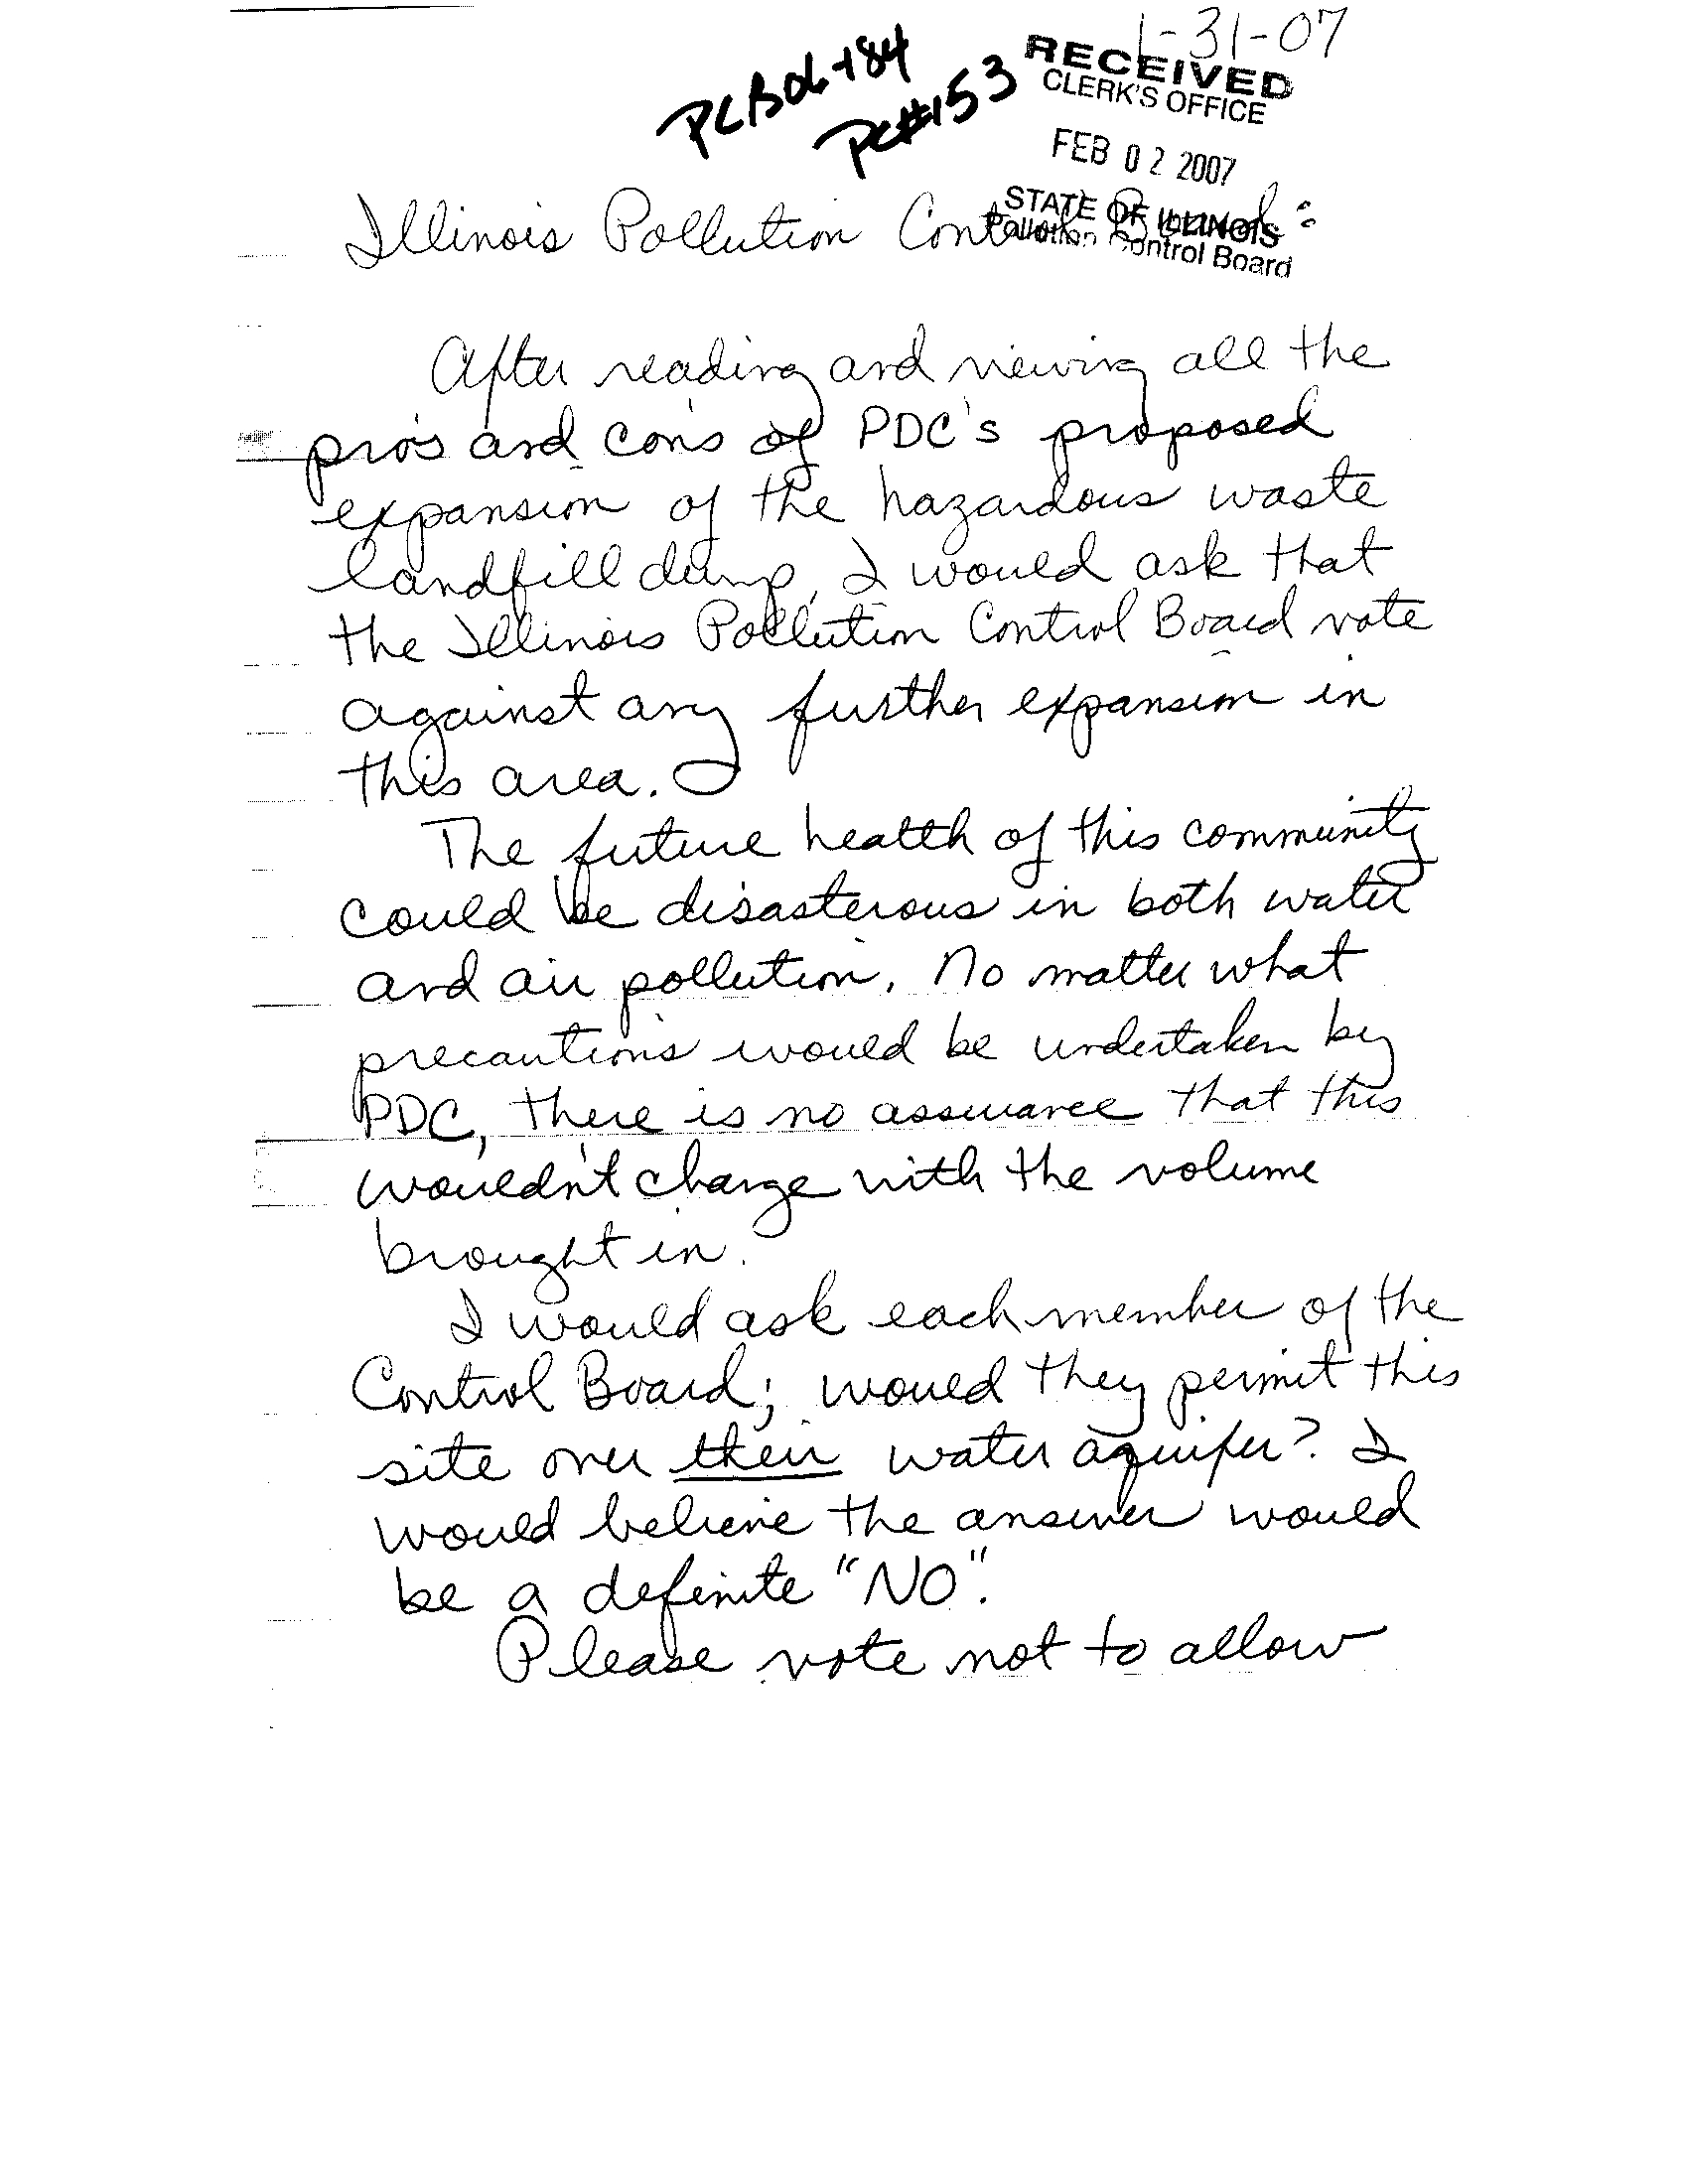 1-31-07
PCB06-184
PC#153
RECEIVED
CLERK'S OFFICE
FEB 02 2007
STATE OF ILLINOIS
Pollution Control Board
Illinois Pollution Control Board:
After reading and viewing all the
pro's and con's of PDC's proposed
expansion of the hazardous waste
landfill dump, I would ask that
the Illinois Pollution Control Board vote
against any further expansion in
this area.
The future health of this community
could be disasterous in both water
and air pollution. No matter what
precautions would be undertaken by
PDC, there is no assurance that this
wouldn't change with the volume
brought in.
I would ask each member of the
Control Board; would they permit this
site over their water aquifer? I
would believe the answer would
be a definite "NO".
Please vote not to allow